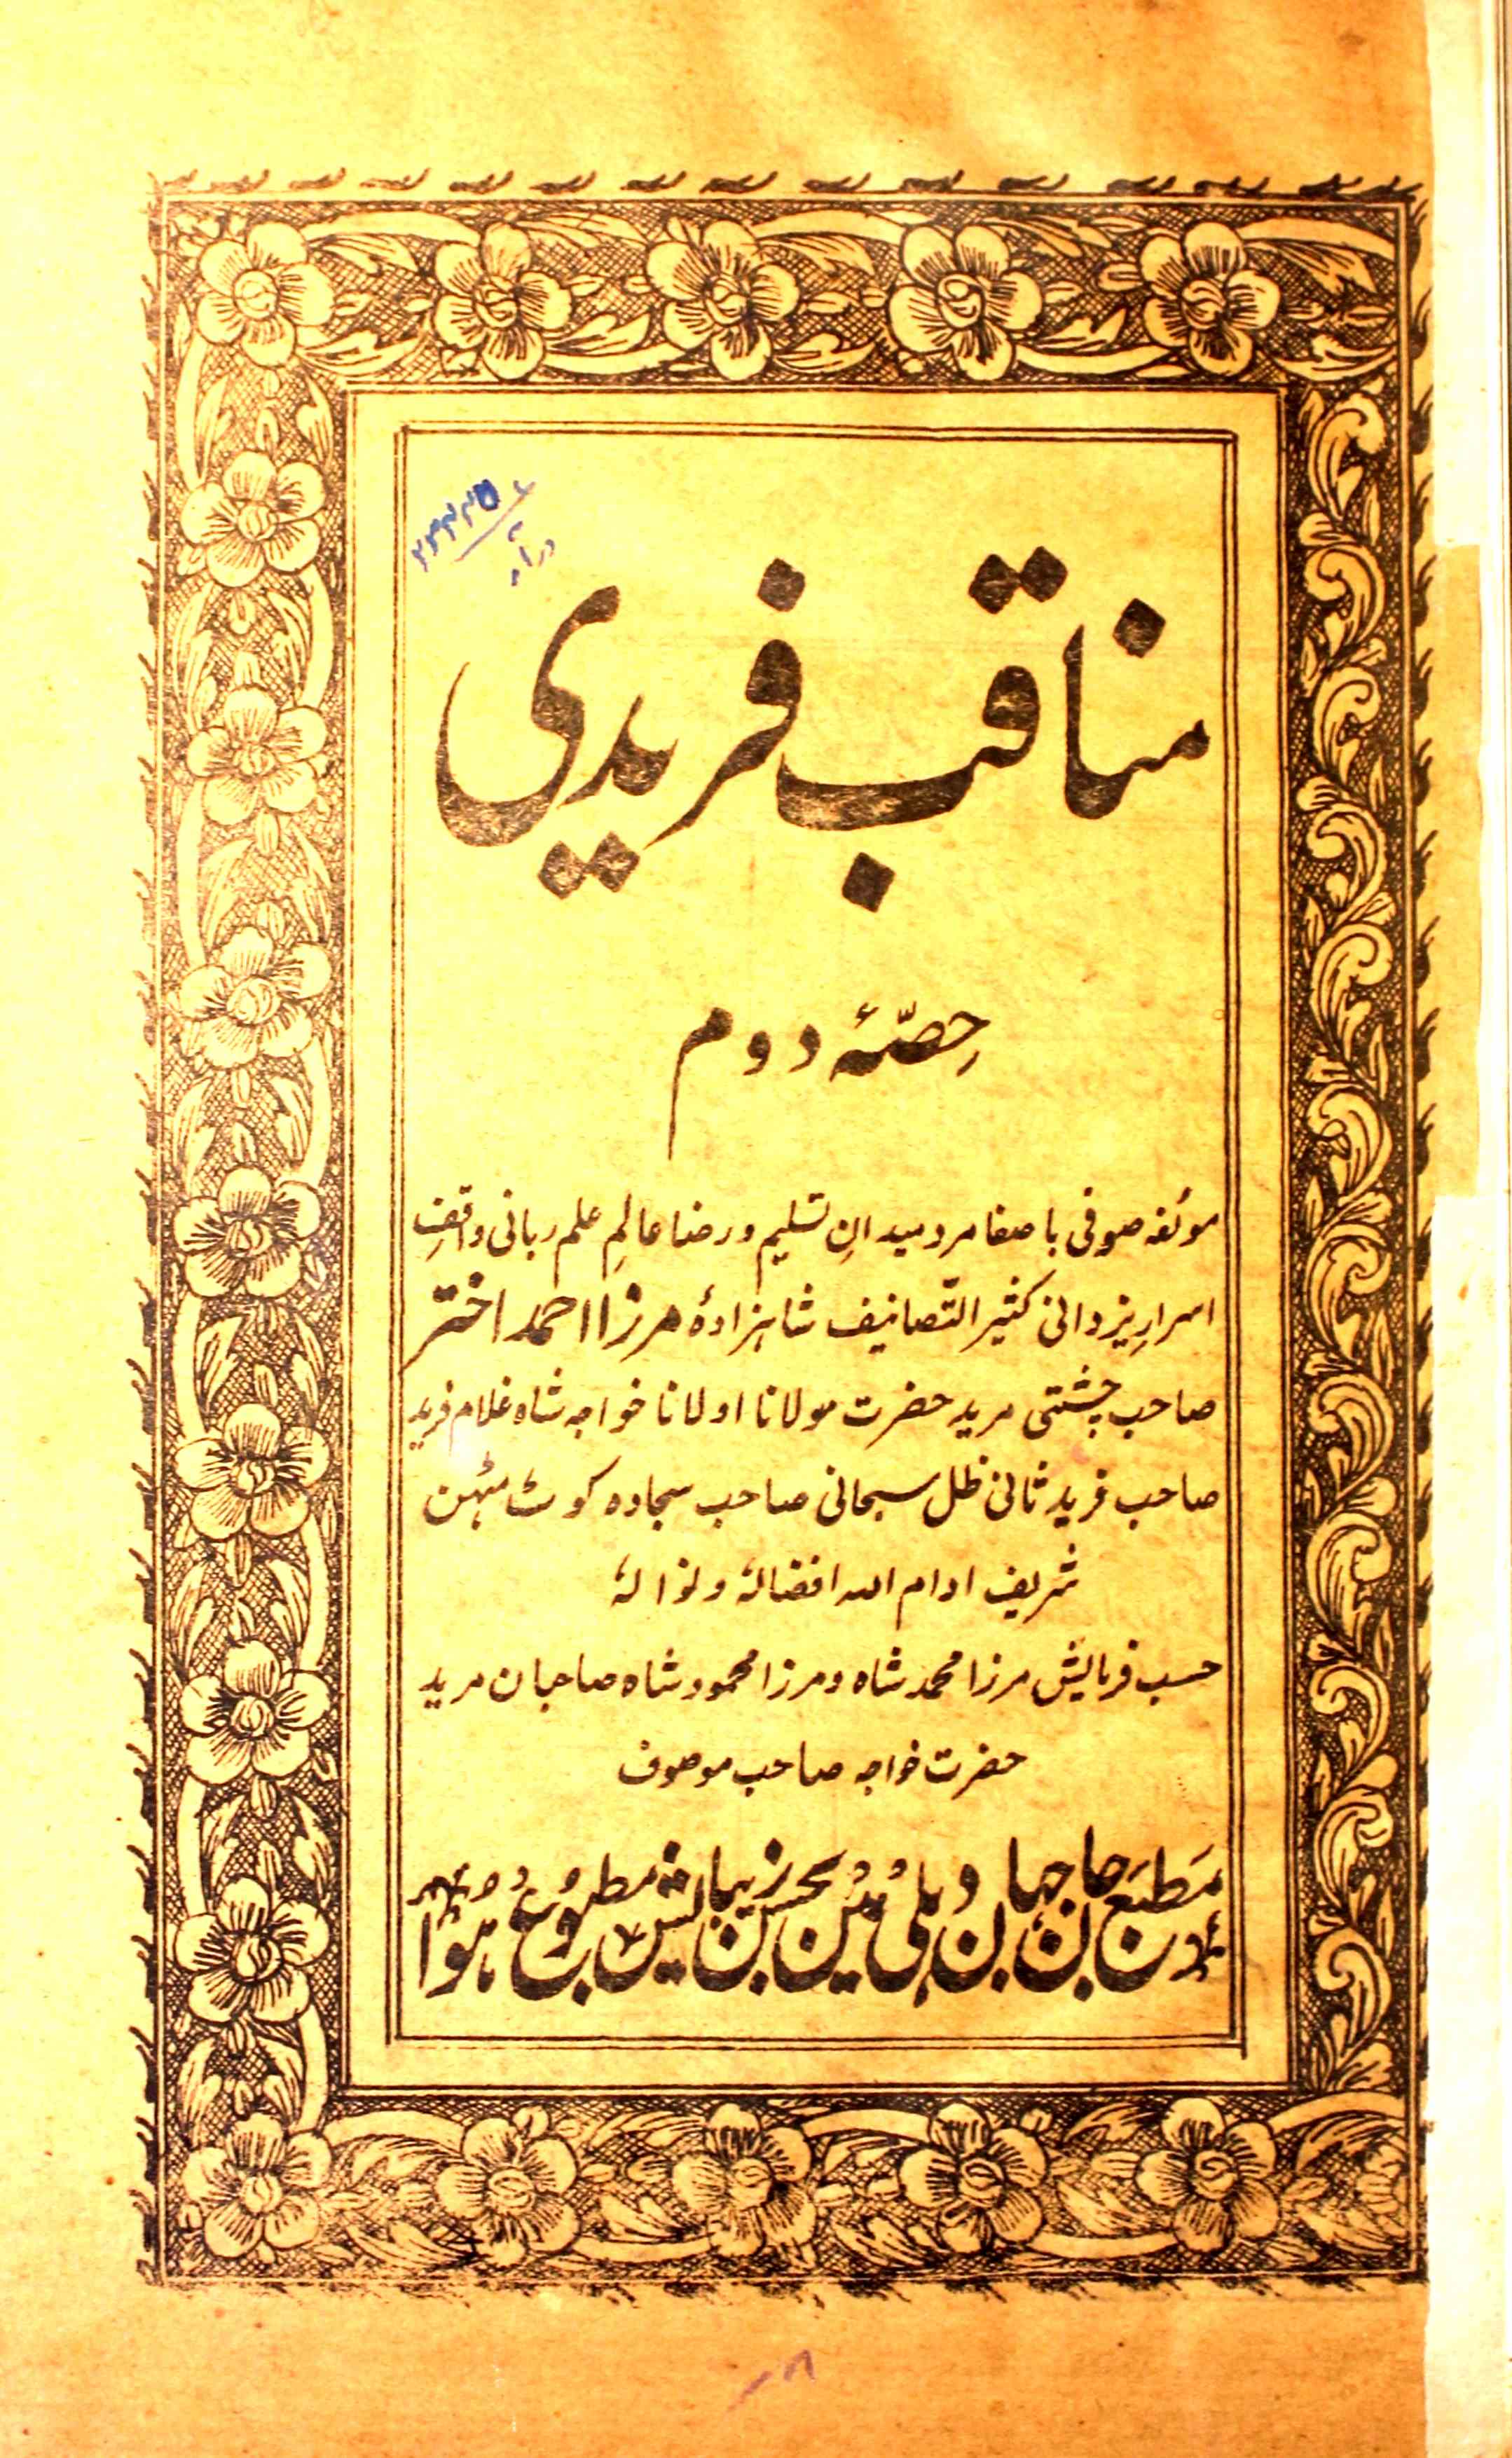 مناقب فریدی
حِصّۂ دوم
مؤلفہ صوفی با صفا مرد میدانِ تسلیم و رضا عالمِ علم ربانی واقفِ
اسرارِ یزدانی کثیر التّصانیف شاہزادۂ مرزا احمد اختر
صاحب چشتی مرید حضرت مولانا اولانا خواجہ شاہ غلام فرید
صاحب فرید ثانی ظل سبحانی صاحب سجادہ کوٹ مٹھن
شریف ادام اللہ افضالہٗ و نوالہٗ
حسب فرمایش مرزا محمد شاہ و مرزا محمود شاہ صاحبان مرید
حضرت خواجہ صاحب موصوف
مطبع احمدی دہلی میں بحسن زیبایش مطبوع ہوا